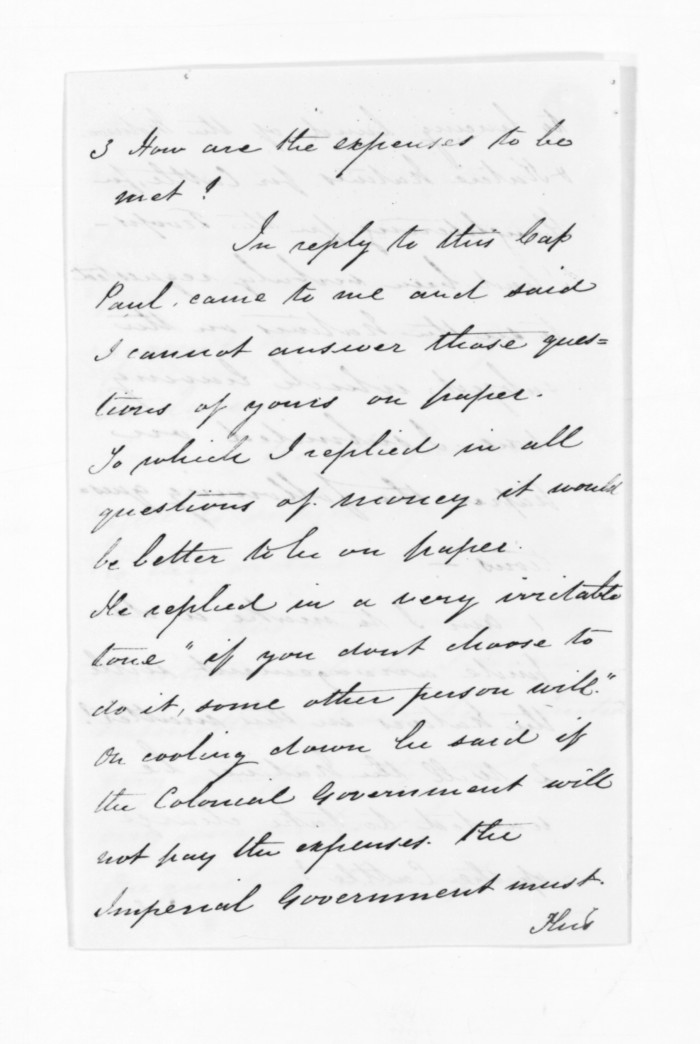 3 How are the expenses to be
met?
In reply to this Cap
Paul. came to me and said
I cannot answer those ques=
tions of yours on paper.
To which I replied in all
questions of money it would
be better to be on paper.
He replied in a very irritable
tone "if you dont choose to
do it, some other person will."
On cooling down he said if
the Colonial Government will
not pay the expenses. the
Imperial Government must.
This